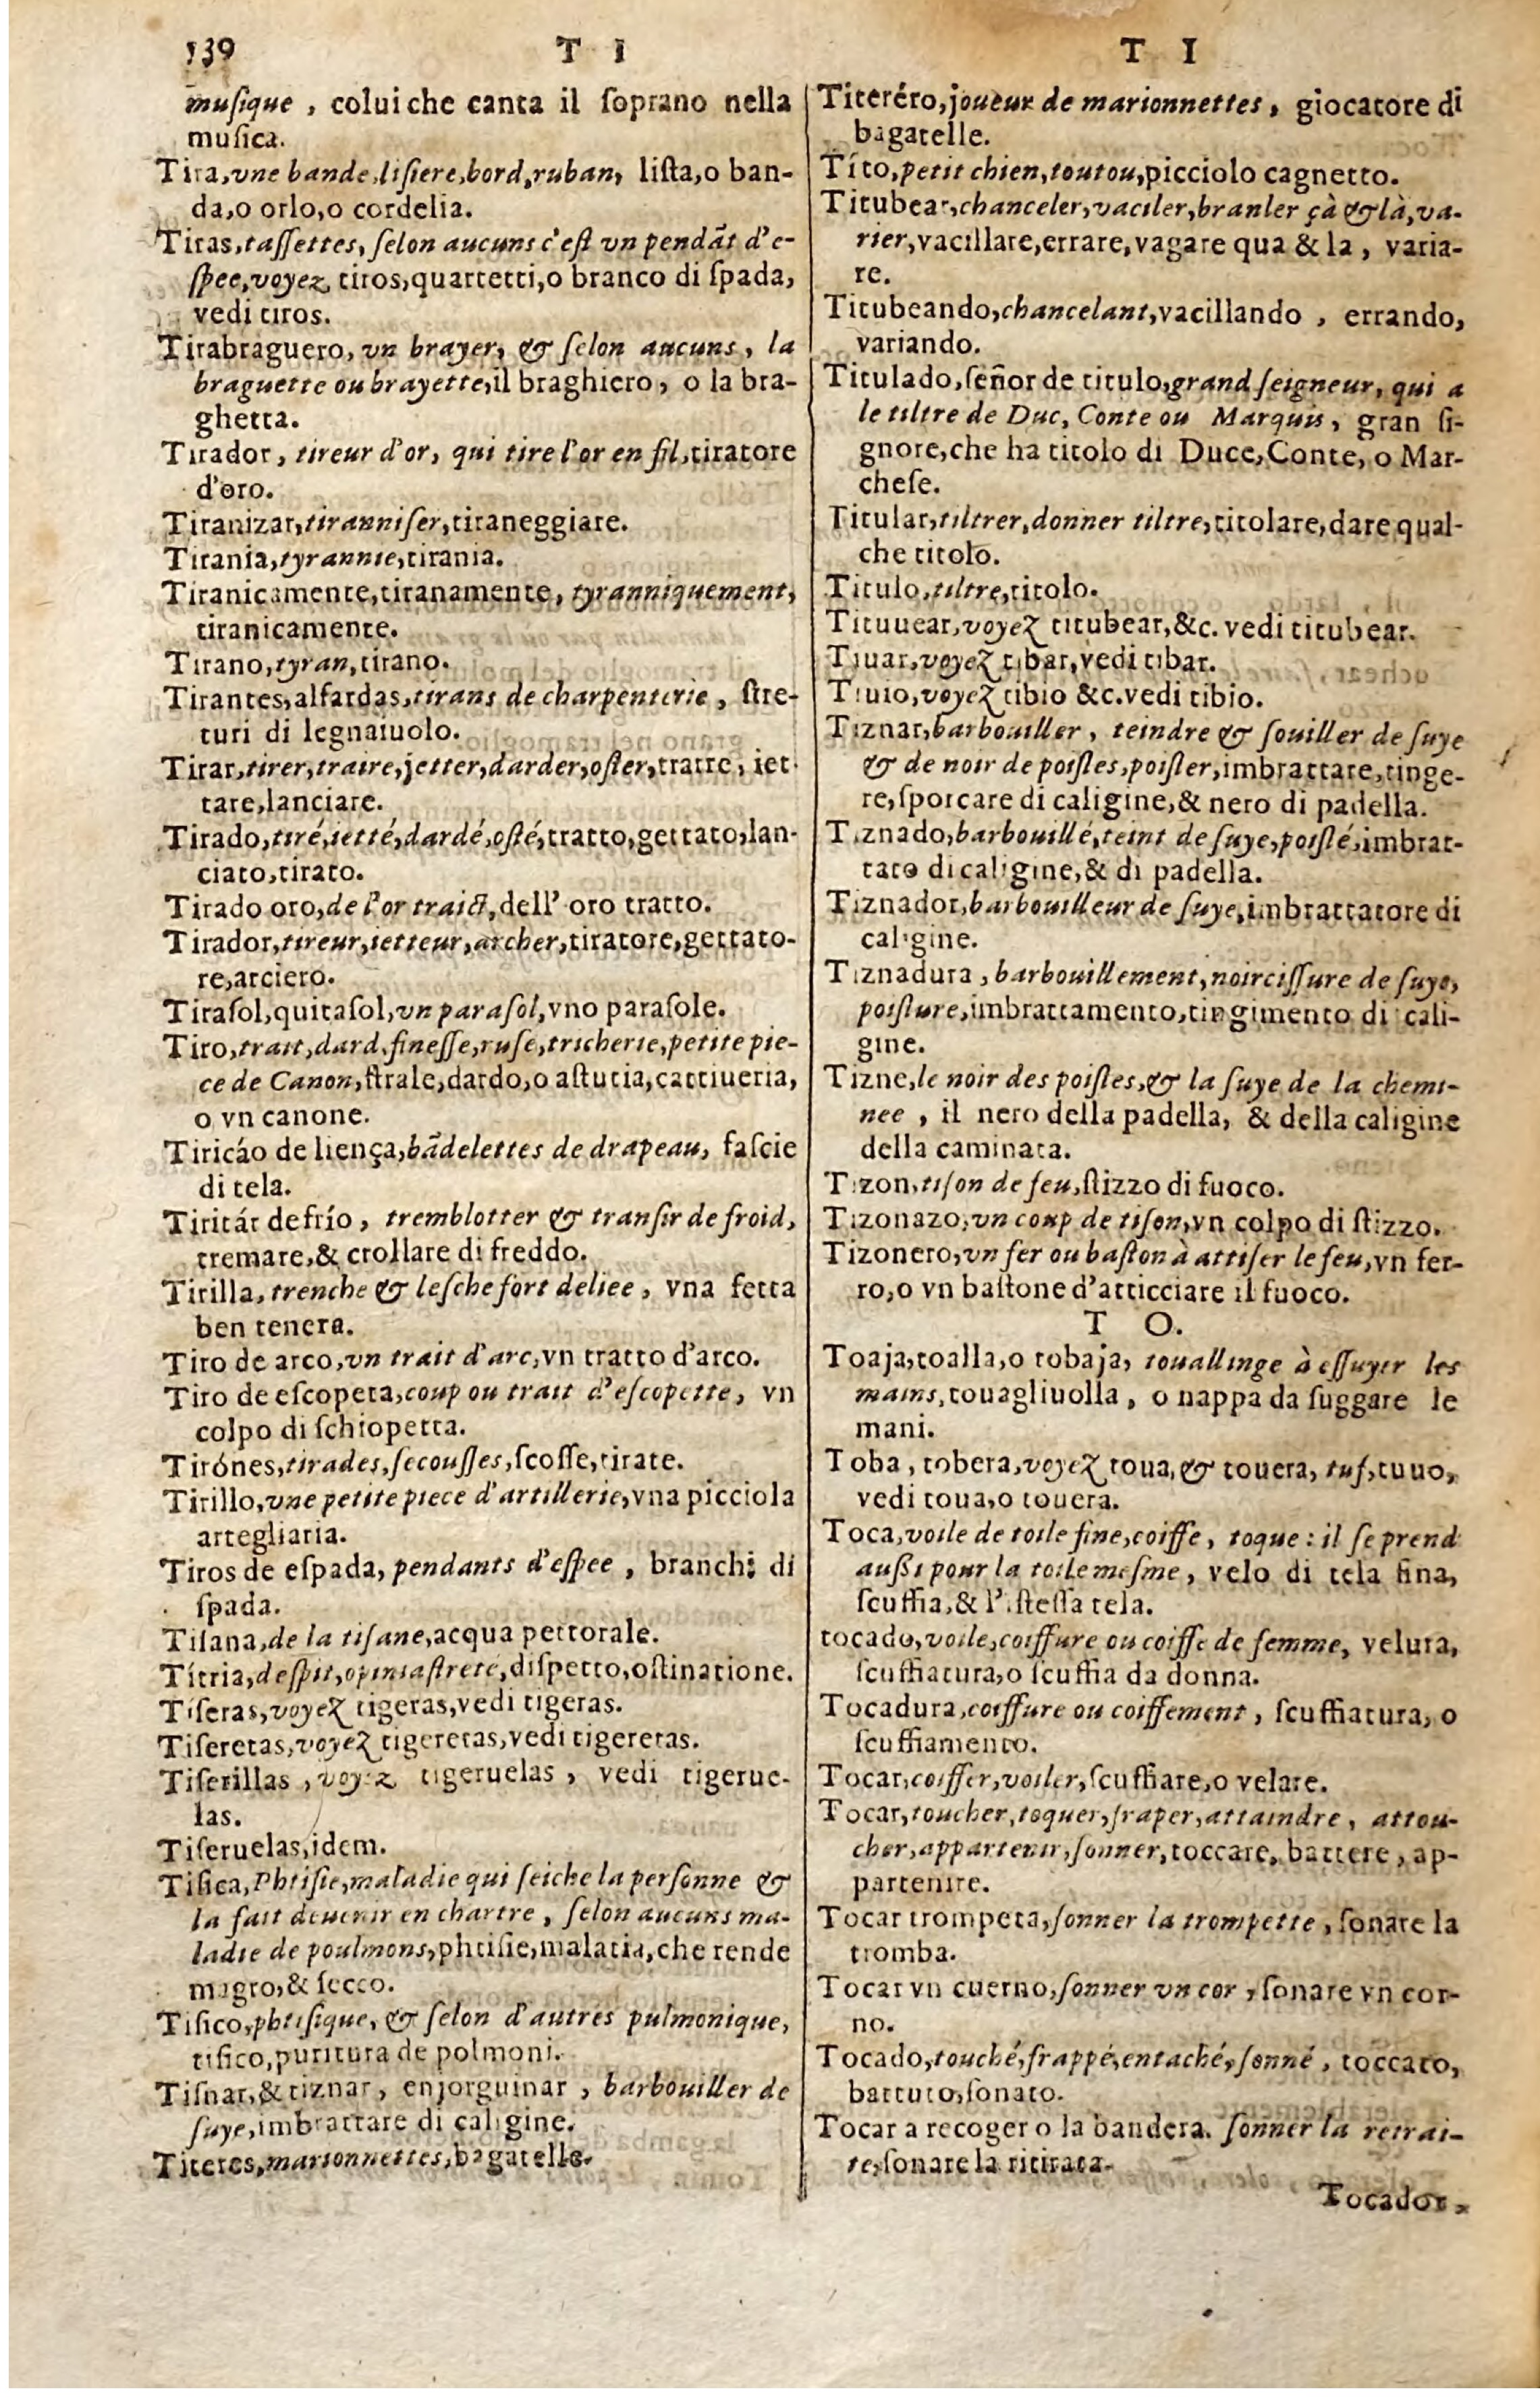 139 T I T I
musique , colui che canta il soprano nella
musica.
Tira,vne bande,lisiere,bord,ruban, lista,o ban-
da,o orlo,o cordelia.
Tiras,tassettes, selon aucuns c'est vn pendãt d'e-
spee,voyez tiros,quartetti,o branco di spada,
vedi tiros.
Tirabraguero, vn brayer, & selon aucuns, la
braguette ou brayette,il braghiero, o la bra-
ghetta.
Tirador, tireur d'or, qui tire l'or en fil,tiratore
d'oro.
Tiranizar,tiranniser,tiraneggiare.
Tirania,tyrannie,tirania.
Tiranicamente,tiranamente, tyranniquement,
tiranicamente.
Tirano,tyran,tirano.
Tirantes,alfardas,tirans de charpenterie, stre-
turi di legnaiuolo.
Tirar,tirer,traire,jetter,darder,oster,tratre, iet-
tare,lanciare.
Tirado,tiré,ietté,dardé,osté,tratto,gettato,lan-
ciato,tirato.
Tirado oro,de l'or traict,dell' oro tratto.
Tirador,tireur,ietteur,archer,tiratore,gettato-
re,arciero.
Tirasol,quitasol,vn parasol,vno parasole.
Tiro,trait,dard,finesse,ruse,tricherie,petite pie-
ce de Canon,strale,dardo,o astutia,cattiueria,
o vn canone.
Tiricáo de liença,bãdelettes de drapeau, fascie
di tela.
Tiritár de frío, tremblotter & transir de froid,
tremare,& crollare di freddo.
Tirilla, trenche & lesche fort deliee, vna fetta
ben tenera.
Tiro de arco,vn trait d'arc,vn tratto d'arco.
Tiro de escopeta,coup ou trait d'escopette, vn
colpo di schiopetta.
Tirónes,tirades,secousses,scosse,tirate.
Tirillo,vne petite piece d'artillerie,vna picciola
artegliaria.
Tiros de espada, pendants d'espee, branchi di
spada.
Tisana,de la tisane,acqua pettorale.
Títria,despit,opiniastreté,dispetto,ostinatione.
Tíseras,voyez tigeras,vedi tigeras.
Tiseretas,voyez tigeretas,vedi tigeretas.
Tiserillas, voyez tigeruelas, vedi tigerue-
las.
Tiseruelas,idem.
Tisica,Phtisie,maladie qui seiche la personne &
la fait deuenir en chartre, selon aucuns ma-
ladie de poulmons,phtisie,malatia,che rende
magro,& secco.
Tisico,phtisique, & selon d'autres pulmonique,
tisico,puritura de polmoni.
Tisnar,& tiznar, enjorguinar, barbouiller de
suye,imbrattare di caligine.
Titeres,marionnettes,bagatelle.
Titeréro,joueur de marionnettes, giocatore di
bagatelle.
Títo,petit chien,toutou,picciolo cagnetto.
Titubear,chanceler,vaciler,branler çà & là,va-
rier,vacillare,errare,vagare qua & la, varia-
re.
Titubeando,chancelant,vacillando , errando,
variando.
Titulado,señor de titulo,grand seigneur, qui a
le tiltre de Duc, Conte ou Marquis, gran si-
gnore,che ha titolo di Duce,Conte, o Mar-
chese.
Titular,tiltrer,donner tiltre,titolare,dare qual-
che titolo.
Titulo,tiltre,titolo.
Tituuear,voyez titubear,&c. vedi titubear.
Tiuar,voyez tibar,vedi tibar.
Tiuio,voyez tibio &c.vedi tibio.
Tiznar,barbouiller, teindre & souiller de suye
& de noir de poisles,poisler,imbrattare,tinge-
re,sporcare di caligine,& nero di padella.
Tiznado,barbouillé,teint de suye,poislé,imbrat-
tato di caligine,& di padella.
Tiznador,barbouilleur de suye,imbrattatore di
caligine.
Tiznadura,barbouillement,noircissure de suye,
poislure,imbrattamento,tingimento di cali-
gine.
Tizne,le noir des poisles,& la suye de la chemi-
nee , il nero della padella, & della caligine
della caminata.
Tizon,tison de feu,stizzo di fuoco.
Tizonazo,vn coup de tison,vn colpo di stizzo.
Tizonero,vn fer ou baston à attiser le feu,vn fer-
ro,o vn bastone d'atticciare il fuoco.
T O.
Toaja,toalla,o tobaja, touallinge à essuyer les
mains,touagliuolla, o nappa da suggare le
mani.
Toba, tobera,voyez toua,& touera, tuf,tuuo,
vedi toua,o touera.
Toca,voile de toile fine,coiffe, toque: il se prend
aussi pour la toile mesme, velo di tela fina,
scuffia,& l'istessa tela.
tocado,voile,coiffure ou coiffe de femme, velura,
scuffiatura,o scuffia da donna.
Tocadura,coiffure ou coiffement, scuffiatura, o
scuffiamento.
Tocar,coiffer,voiler,scuffiare,o velare.
Tocar,toucher,toquer,fraper,attaindre, attou-
cher,appartenir,sonner,toccare, battere, ap-
partenire.
Tocar trompeta,sonner la trompette, sonare la
tromba.
Tocar vn cuerno,sonner vn cor, sonare vn cor-
no.
Tocado,touché,frappé,entaché,sonné, toccato,
battuto,sonato.
Tocar a recoger o la bandera. sonner la retrai-
te,sonare la ritirata.
Tocador,